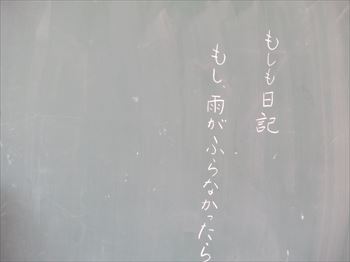 もしも日記
もし、雨がふらなかったら